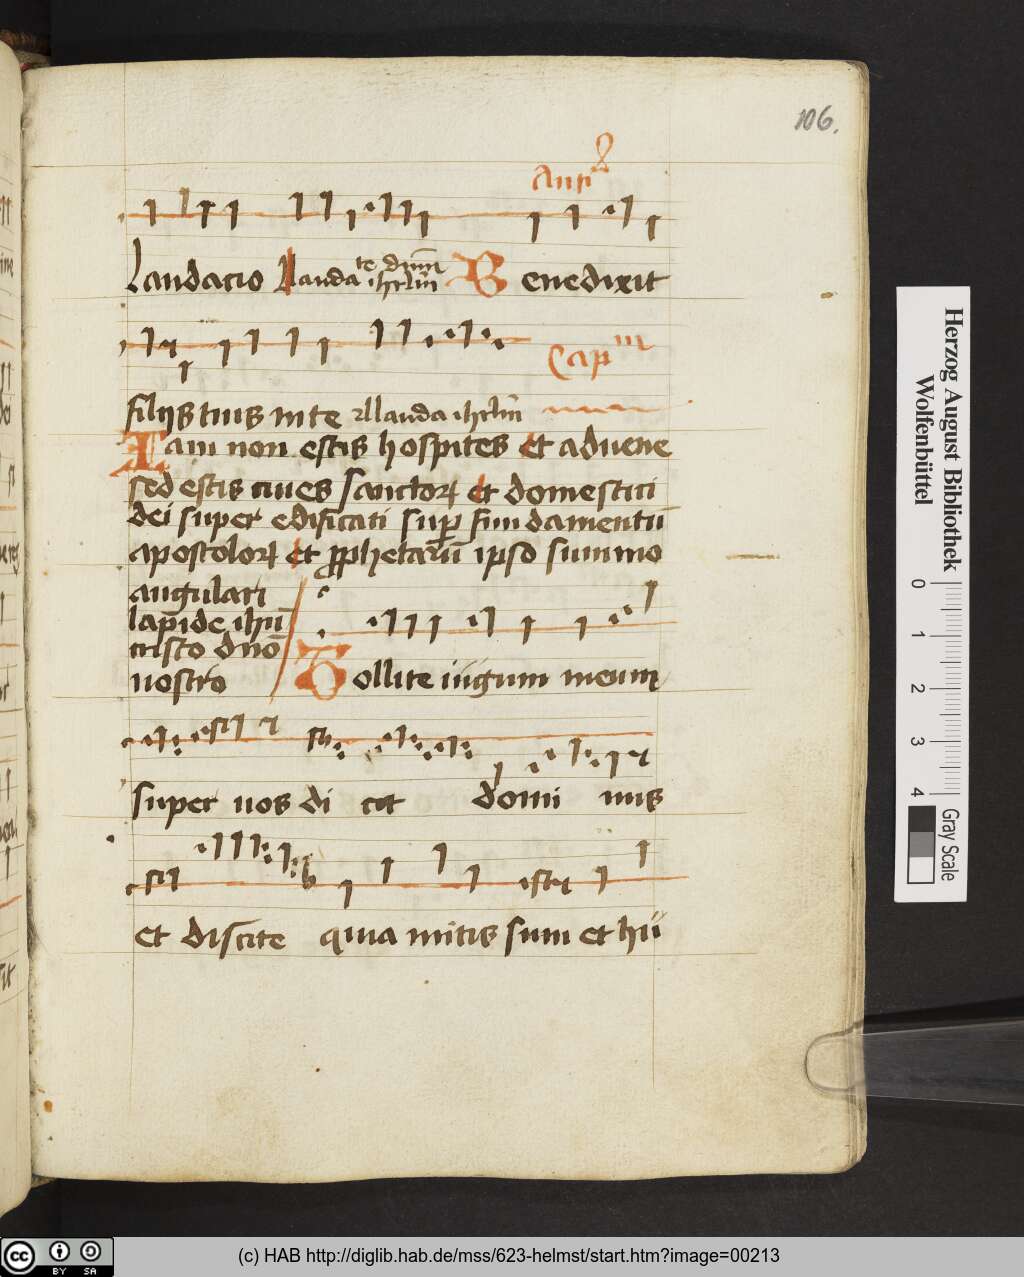 106.
Anti
Laudacio Lauda te dnm ihrlm Benedixit
Capm
filijs tuis in te Llauda ihrlm
Iam non estis hospites et aduene
sed estis ciues sanctor et domestici
dei super edificati sup fundamentū
apostolor et pphetarū ipso summo
angulari
lapide ihū
cristo dno
nostro
Tollite iugum meum
super uos di cit domi nus
et discite quia mitis sum et hū
Herzog August Bibliothek
Wolfenbüttel
0 1 2 3 4
Gray Scale
cc BY SA
(c) HAB http://diglib.hab.de/mss/623-helmst/start.htm?image=00213